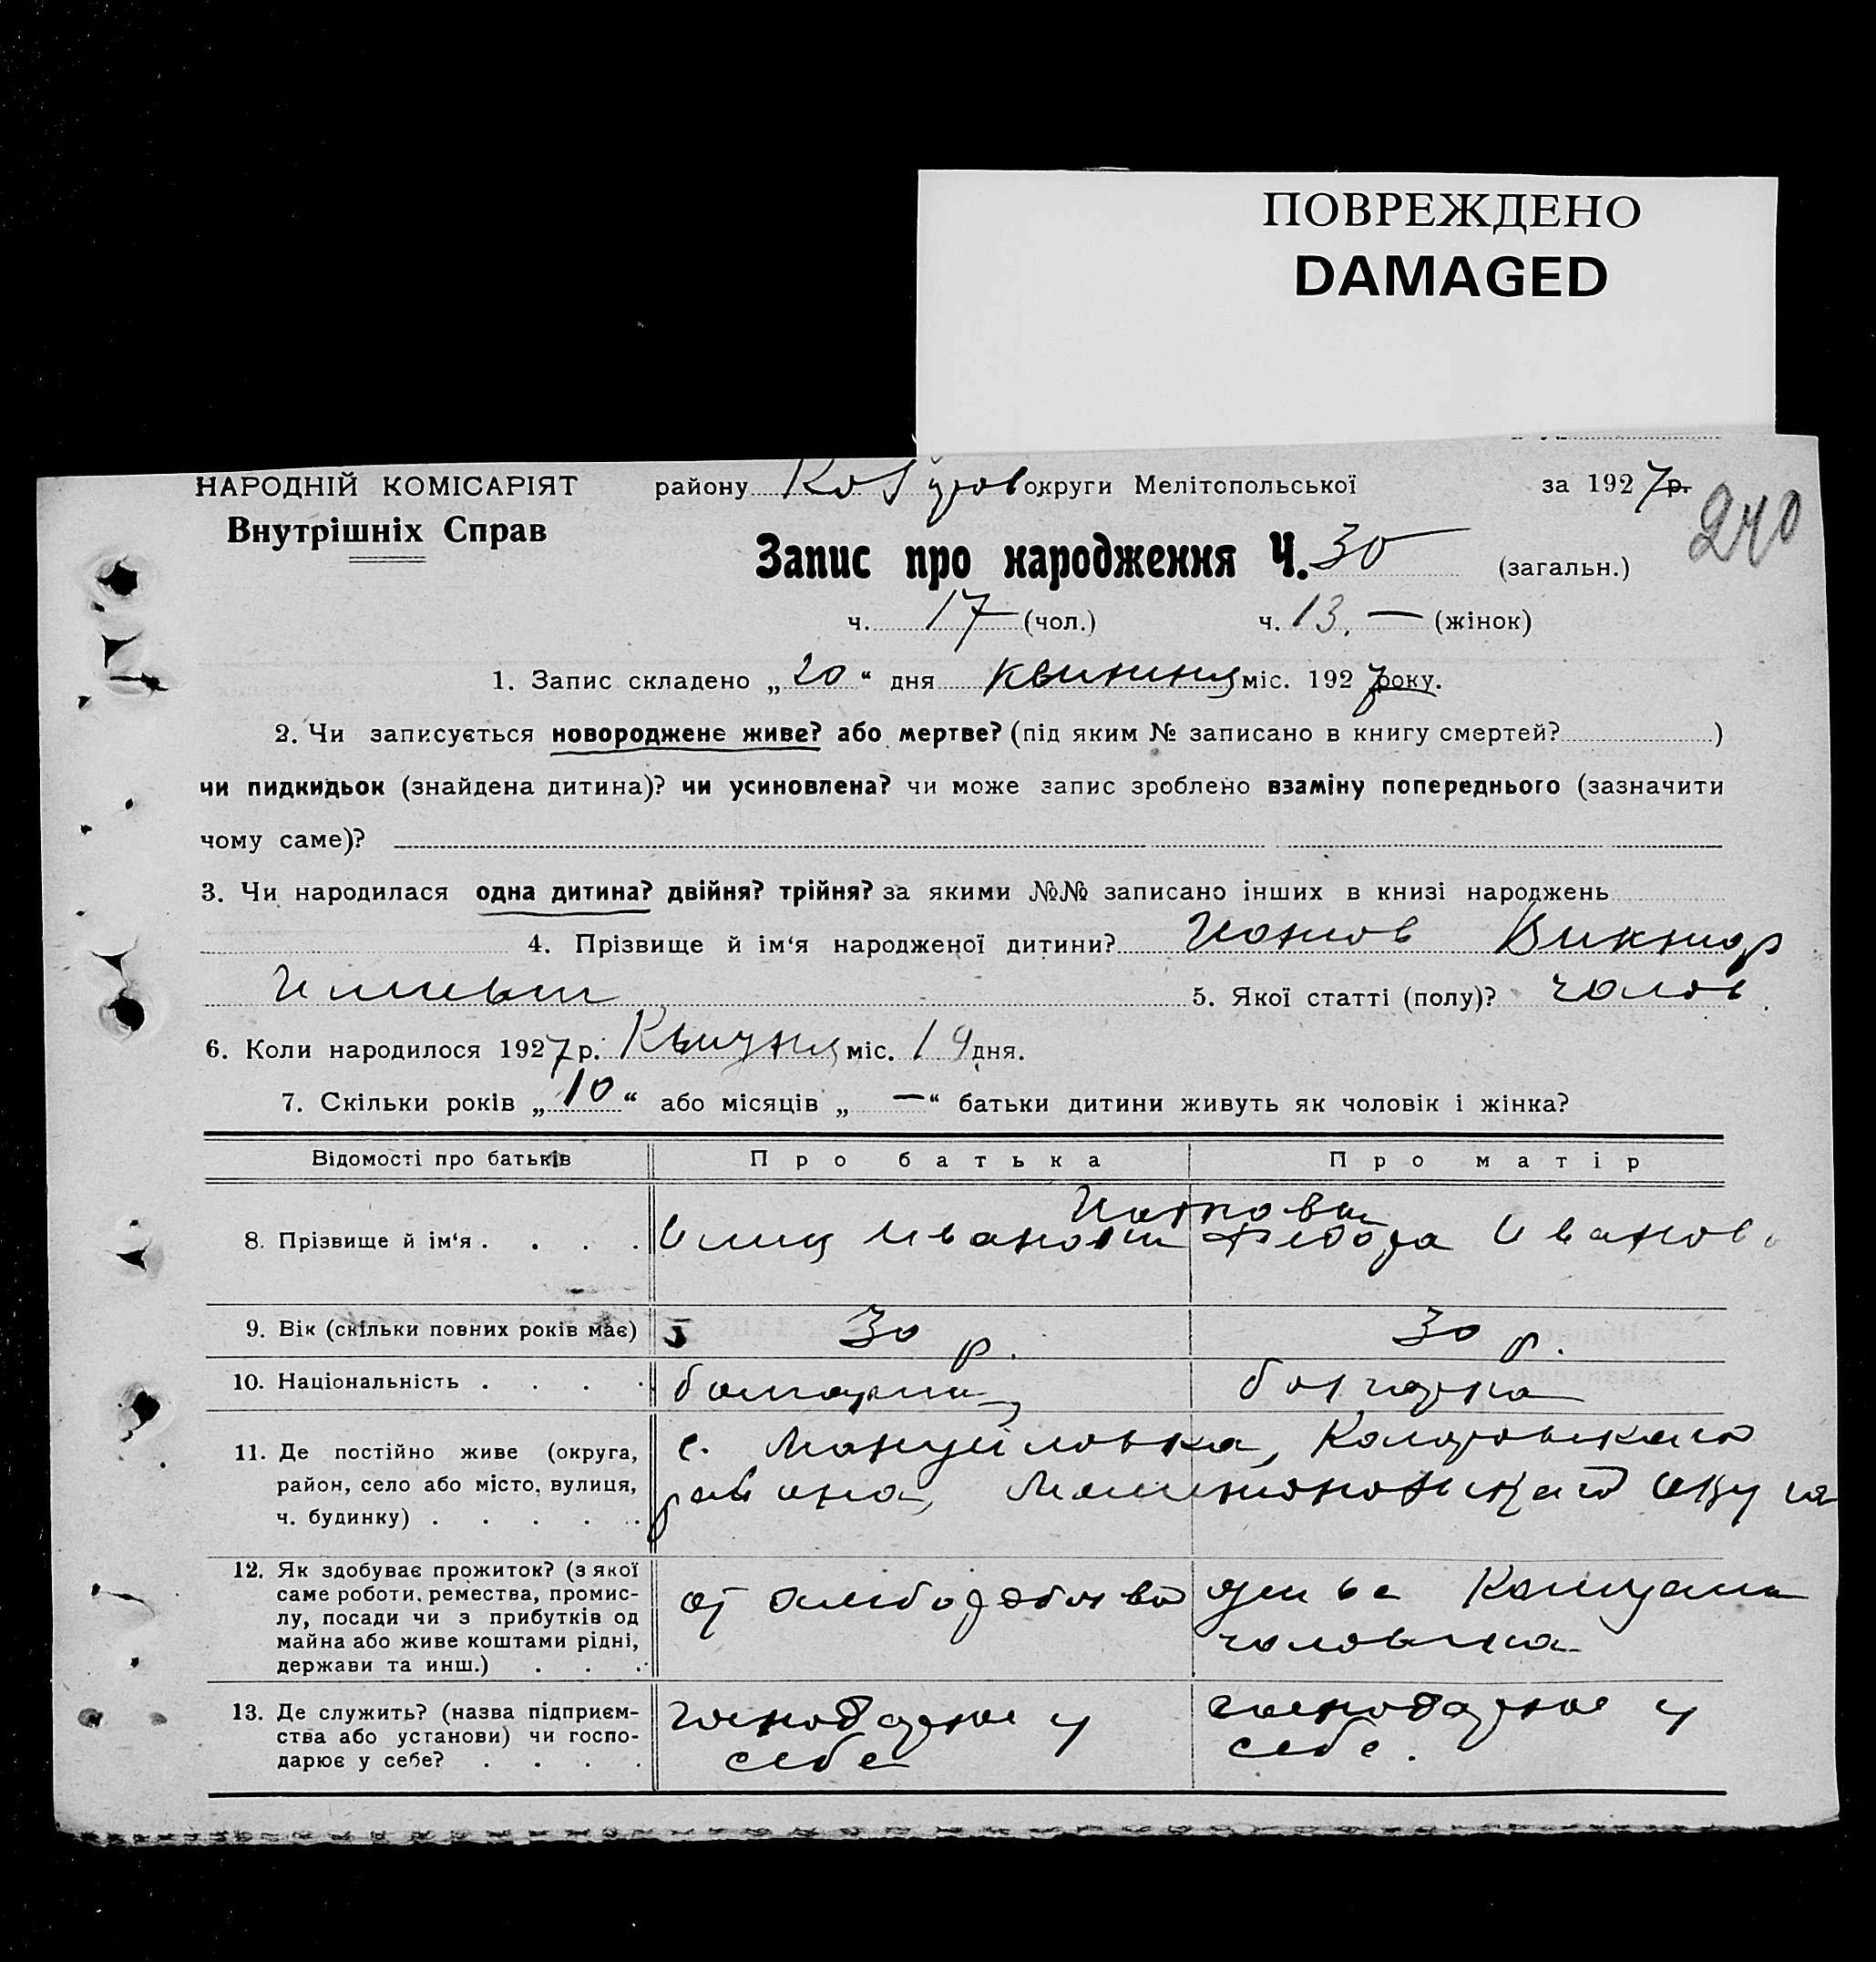 ПОВРЕЖДЕНО
DAMAGED
НАРОДНІЙ КОМІСАРІЯТ району округи Мелітопольської за 1927р.
Внутрішніх Справ
240
Запис про народження Ч. 30 (загальн.)
ч. 17 (чол.) ч. 13. — (жінок)
1. Запис складено „20“ дня квитня міс. 1927 року.
2. Чи записується новороджене живе? або мертве? (під яким № записано в книгу смертей? )
чи пидкидьок (знайдена дитина)? чи усиновлена? чи може запис зроблено взаміну попереднього (зазначити
чому саме)?
3. Чи народилася одна дитина? двійня? трійня? за якими №№ записано інших в книзі народжень
4. Прізвище й ім‘я народженої дитини? Виктор
5. Якої статті (полу)? чолов.
6. Коли народилося 1927 р. Квитня міс. 19 дня.
7. Скільки років „10“ або місяців „—“ батьки дитини живуть як чоловік і жінка?
Відомості про батьків Про батька Про матір
8. Прізвище й ім‘я . . . . Илия Иванович Федора Иванов
9. Вік (скільки повних років має) 30 р. 30 р.
10. Національність . . . . болгарин болгарка
11. Де постійно живе (округа,
район, село або місто, вулиця,
ч. будинку) . . . . .
с. Мануйловка, Коларовского
района, Мелитопольского округа
12. Як здобуває прожиток? (з якої
саме роботи, ремества, промис-
лу, посади чи з прибутків од
майна або живе коштами рідні,
держави та инш.) . . .
от хлеборобства
живе коштами
чоловика
13. Де служить? (назва підприєм-
ства або установи) чи госпо-
дарює у себе? . . . .
господарює у
себе
господарює у
себе.